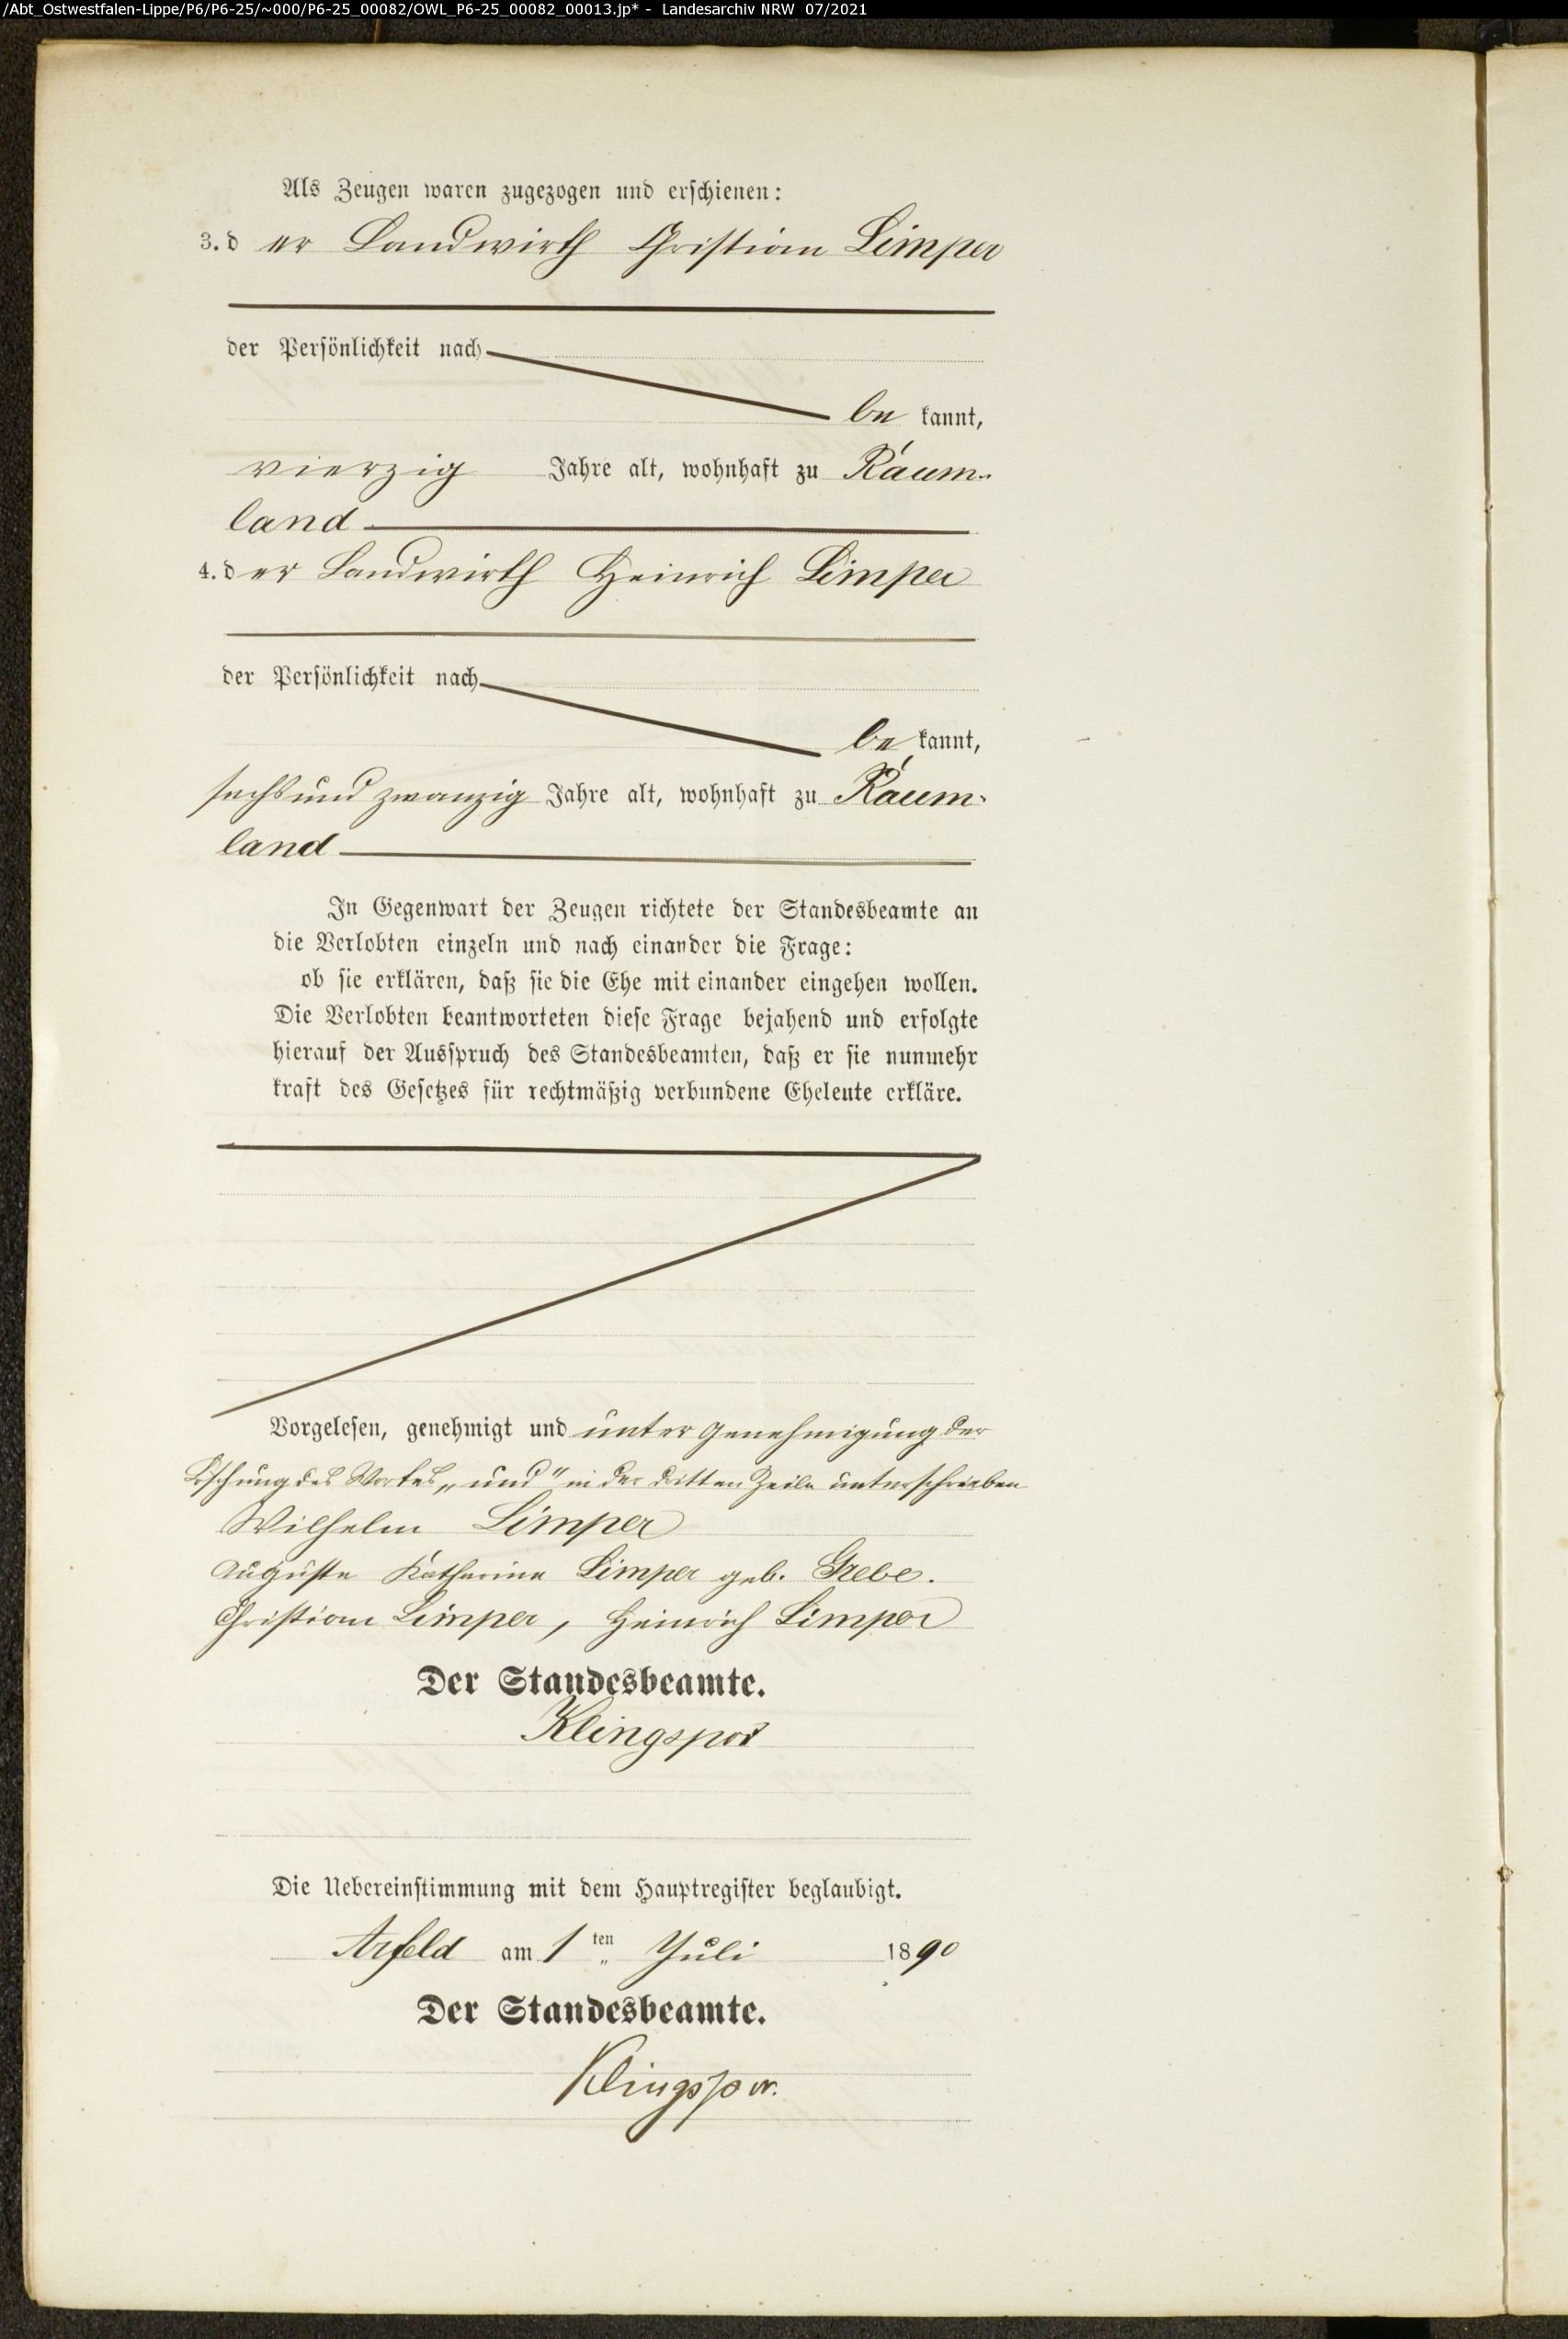 /Abt_Ostwestfalen-Lippe/P6/P6-25/~000/P6-25_00082/OWL_P6-25_00082_00013.jp* - Landesarchiv NRW 07/2021
Als Zeugen waren zugezogen und erschienen:
3. d er Landwirth Christian Limper
der Persönlichkeit nach
be kannt,
vierzig Jahre alt, wohnhaft zu Raum-
land
4. d er Landwirth Heinrich Limper
der Persönlichkeit nach
be kannt,
sechs und zwanzig Jahre alt, wohnhaft zu Raum-
land
In Gegenwart der Zeugen richtete der Standesbeamte an
die Verlobten einzeln und nach einander die Frage:
ob sie erklären, daß sie die Ehe mit einander eingehen wollen.
Die Verlobten beantworteten diese Frage bejahend und erfolgte
hierauf der Ausspruch des Standesbeamten, daß er sie nunmehr
kraft des Gesetzes für rechtmäßig verbundene Eheleute erkläre.
Vorgelesen, genehmigt und unter Genehmigung der
Löschung des Wortes „und" in der dritten Zeile unterschrieben
Wilhelm Limper
Auguste Katharine Limper geb. Grebe.
Christian Limper, Heinrich Limper
Der Standesbeamte.
Klingspor
Die Uebereinstimmung mit dem Hauptregister beglaubigt.
Arfeld am 1 ten Juli 1890
Der Standesbeamte.
Klingspor.